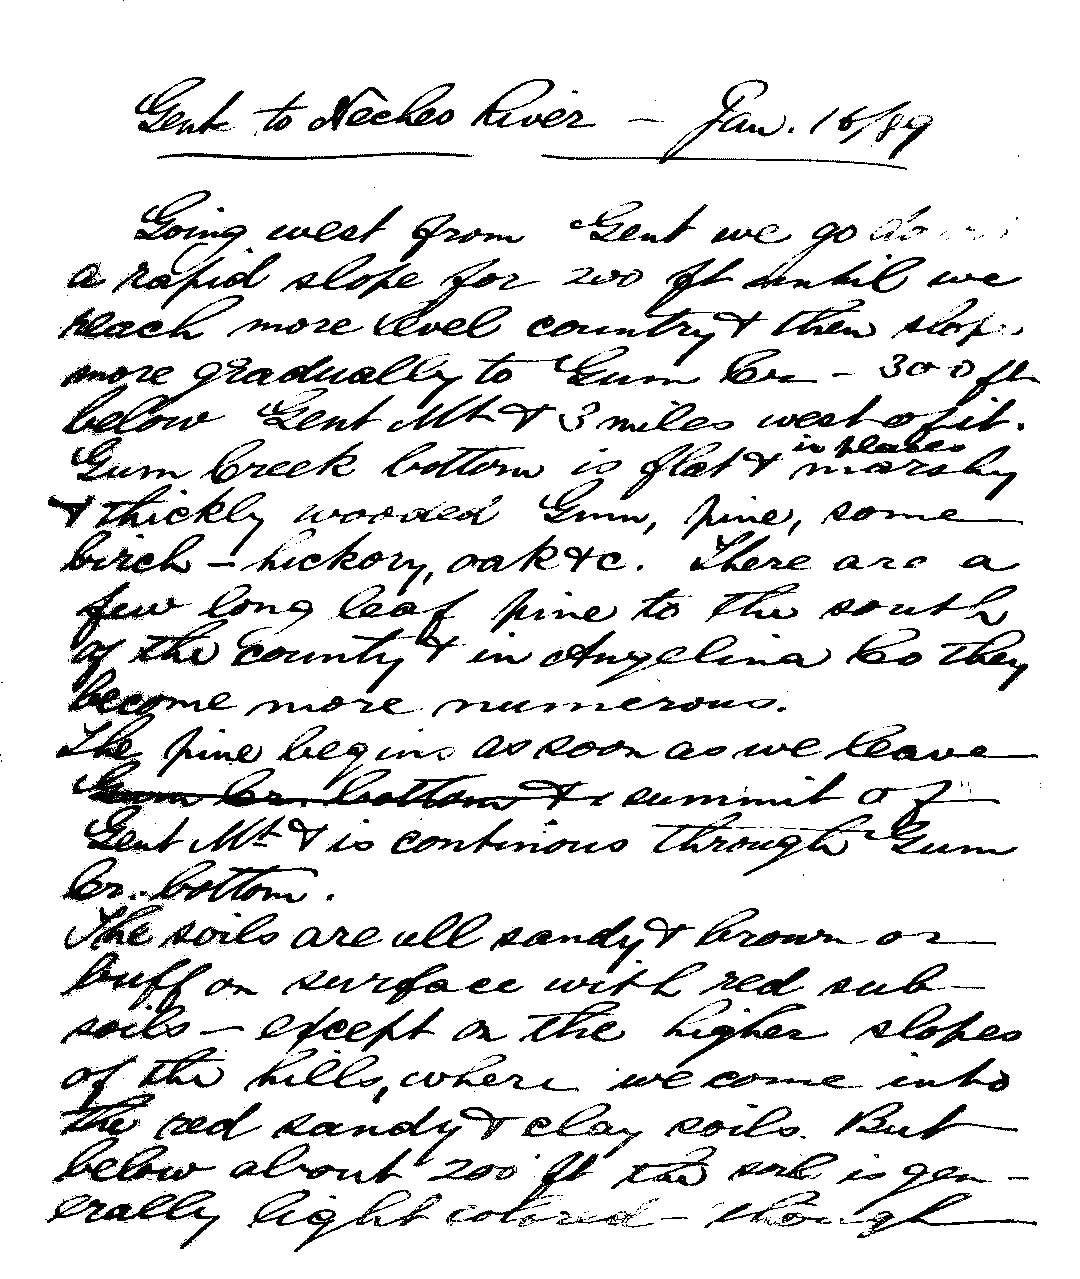 Gent to Neches River — Jan. 16/89
Going west from Gent we go down
a rapid slope for 200 ft until we
reach more level country & then slope
more gradually to Gum Cr — 300 ft
below Gent Mt & 3 miles west of it.
in places
Gum Creek bottom is flat & marshy
& thickly wooded Gum, pine, some
birch — hickory, oak &c. There are a
few long leaf pine to the south
of the county & in Angelina Co they
become more numerous.
The pine begins as soon as we leave
Gum Cr. bottom & summit of
Gent Mt & is continous through Gum
Cr. bottom.
The soils are all sandy & brown or
buff on surface with red sub-
soils — except on the higher slopes
of the hills, where we come into
the red sandy & clay soils. But
below about 200 ft the soil is gen-
erally light colored — though